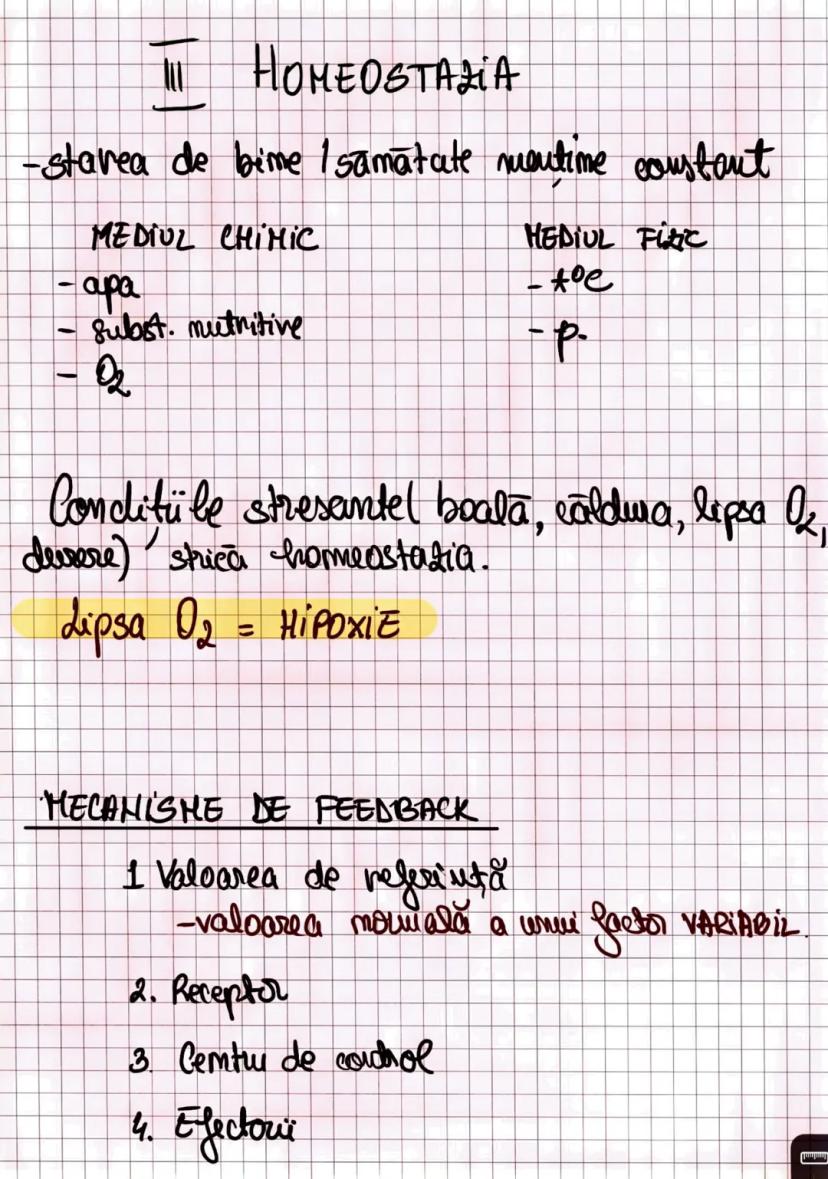 III HOMEOSTAZIA
- starea de bine / sănătate menține constant
MEDIUL CHIMIC MEDIUL FIZIC
- apa - t°C
- subst. nutritive - p.
- O2
Condițiile stresante( boală, căldura, lipsa O2,
strică homeostazia.
Lipsa O2 = HIPOXIE
MECANISME DE FEEDBACK
1 Valoarea de referință
- valoarea normală a unui factor VARIABIL.
2. Receptor
3. Centru de control
4. Efectorii